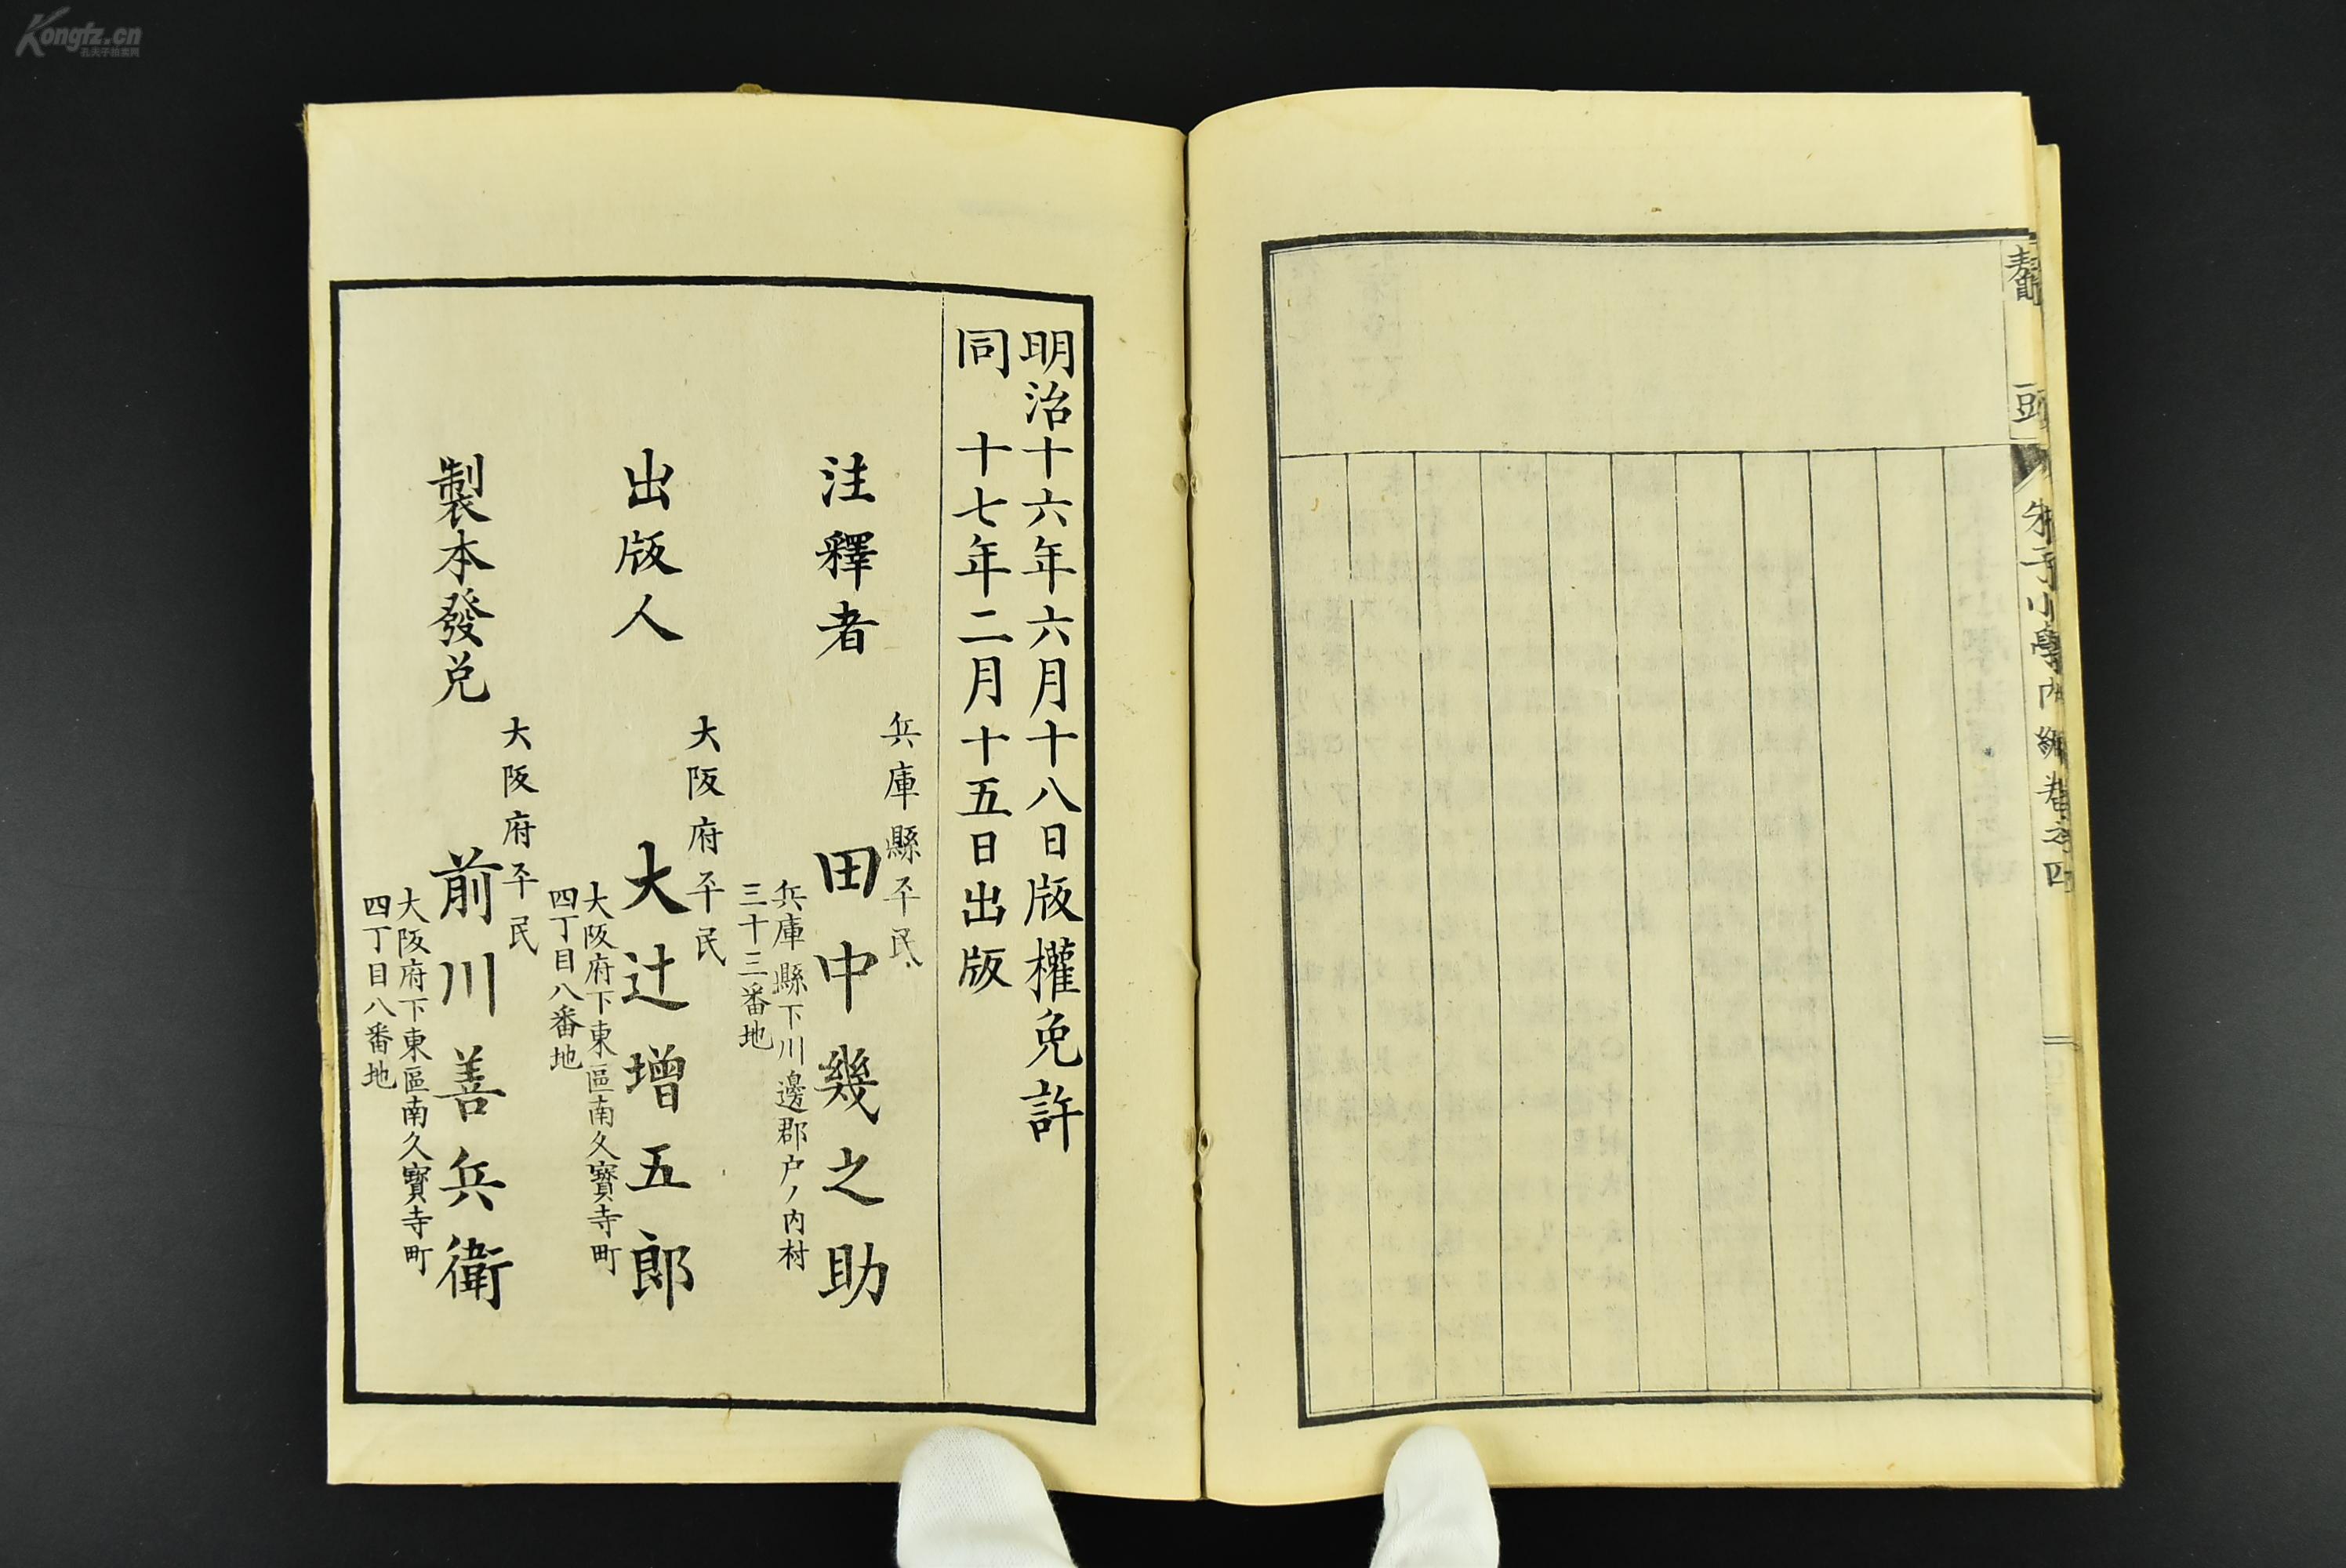 Kongfz.cn
孔夫子拍卖网
鼇頭
朱子小學內編卷之四
明治十六年六月十八日版權免許
同 十七年二月十五日出版
注釋者
兵庫縣平民
田中幾之助
兵庫縣下川邊郡戸ノ内村
三十三番地
出版人
大阪府平民
大辻增五郎
大阪府下東區南久寶寺町
四丁目八番地
製本發兌
大阪府平民
前川善兵衛
大阪府下東區南久寶寺町
四丁目八番地